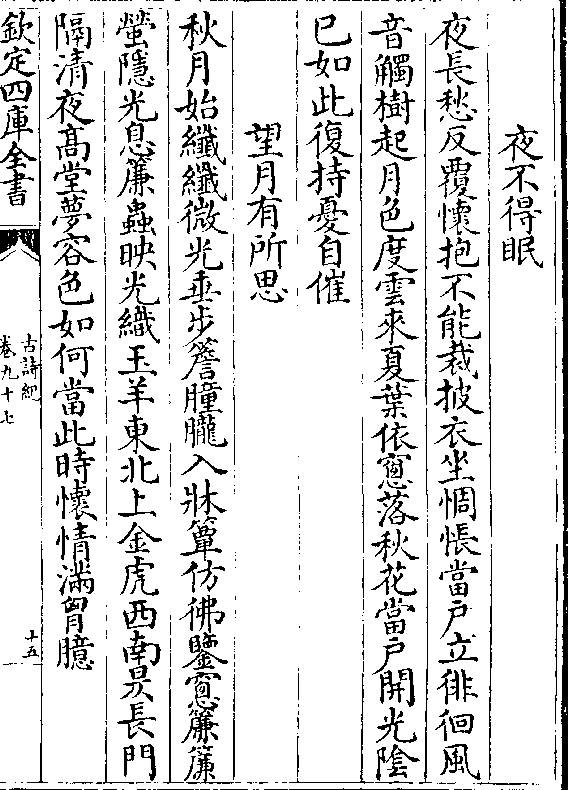 夜不得眠
夜長愁反覆懷抱不能裁披衣坐惆悵當戶立徘徊風
音觸樹起月色度雲來夏葉依窻落秋花當戶開光陰
已如此復持憂自催
望月有所思
秋月始纖纖微光垂步簷朣朧入牀簟仿彿鑒窻簾簾
螢隱光息簾蟲映光織玉羊東北上金虎西南昃長門
隔清夜高堂夢容色如何當此時懷情滿胷臆
欽定四庫全書
古詩紀
卷九十七
十五